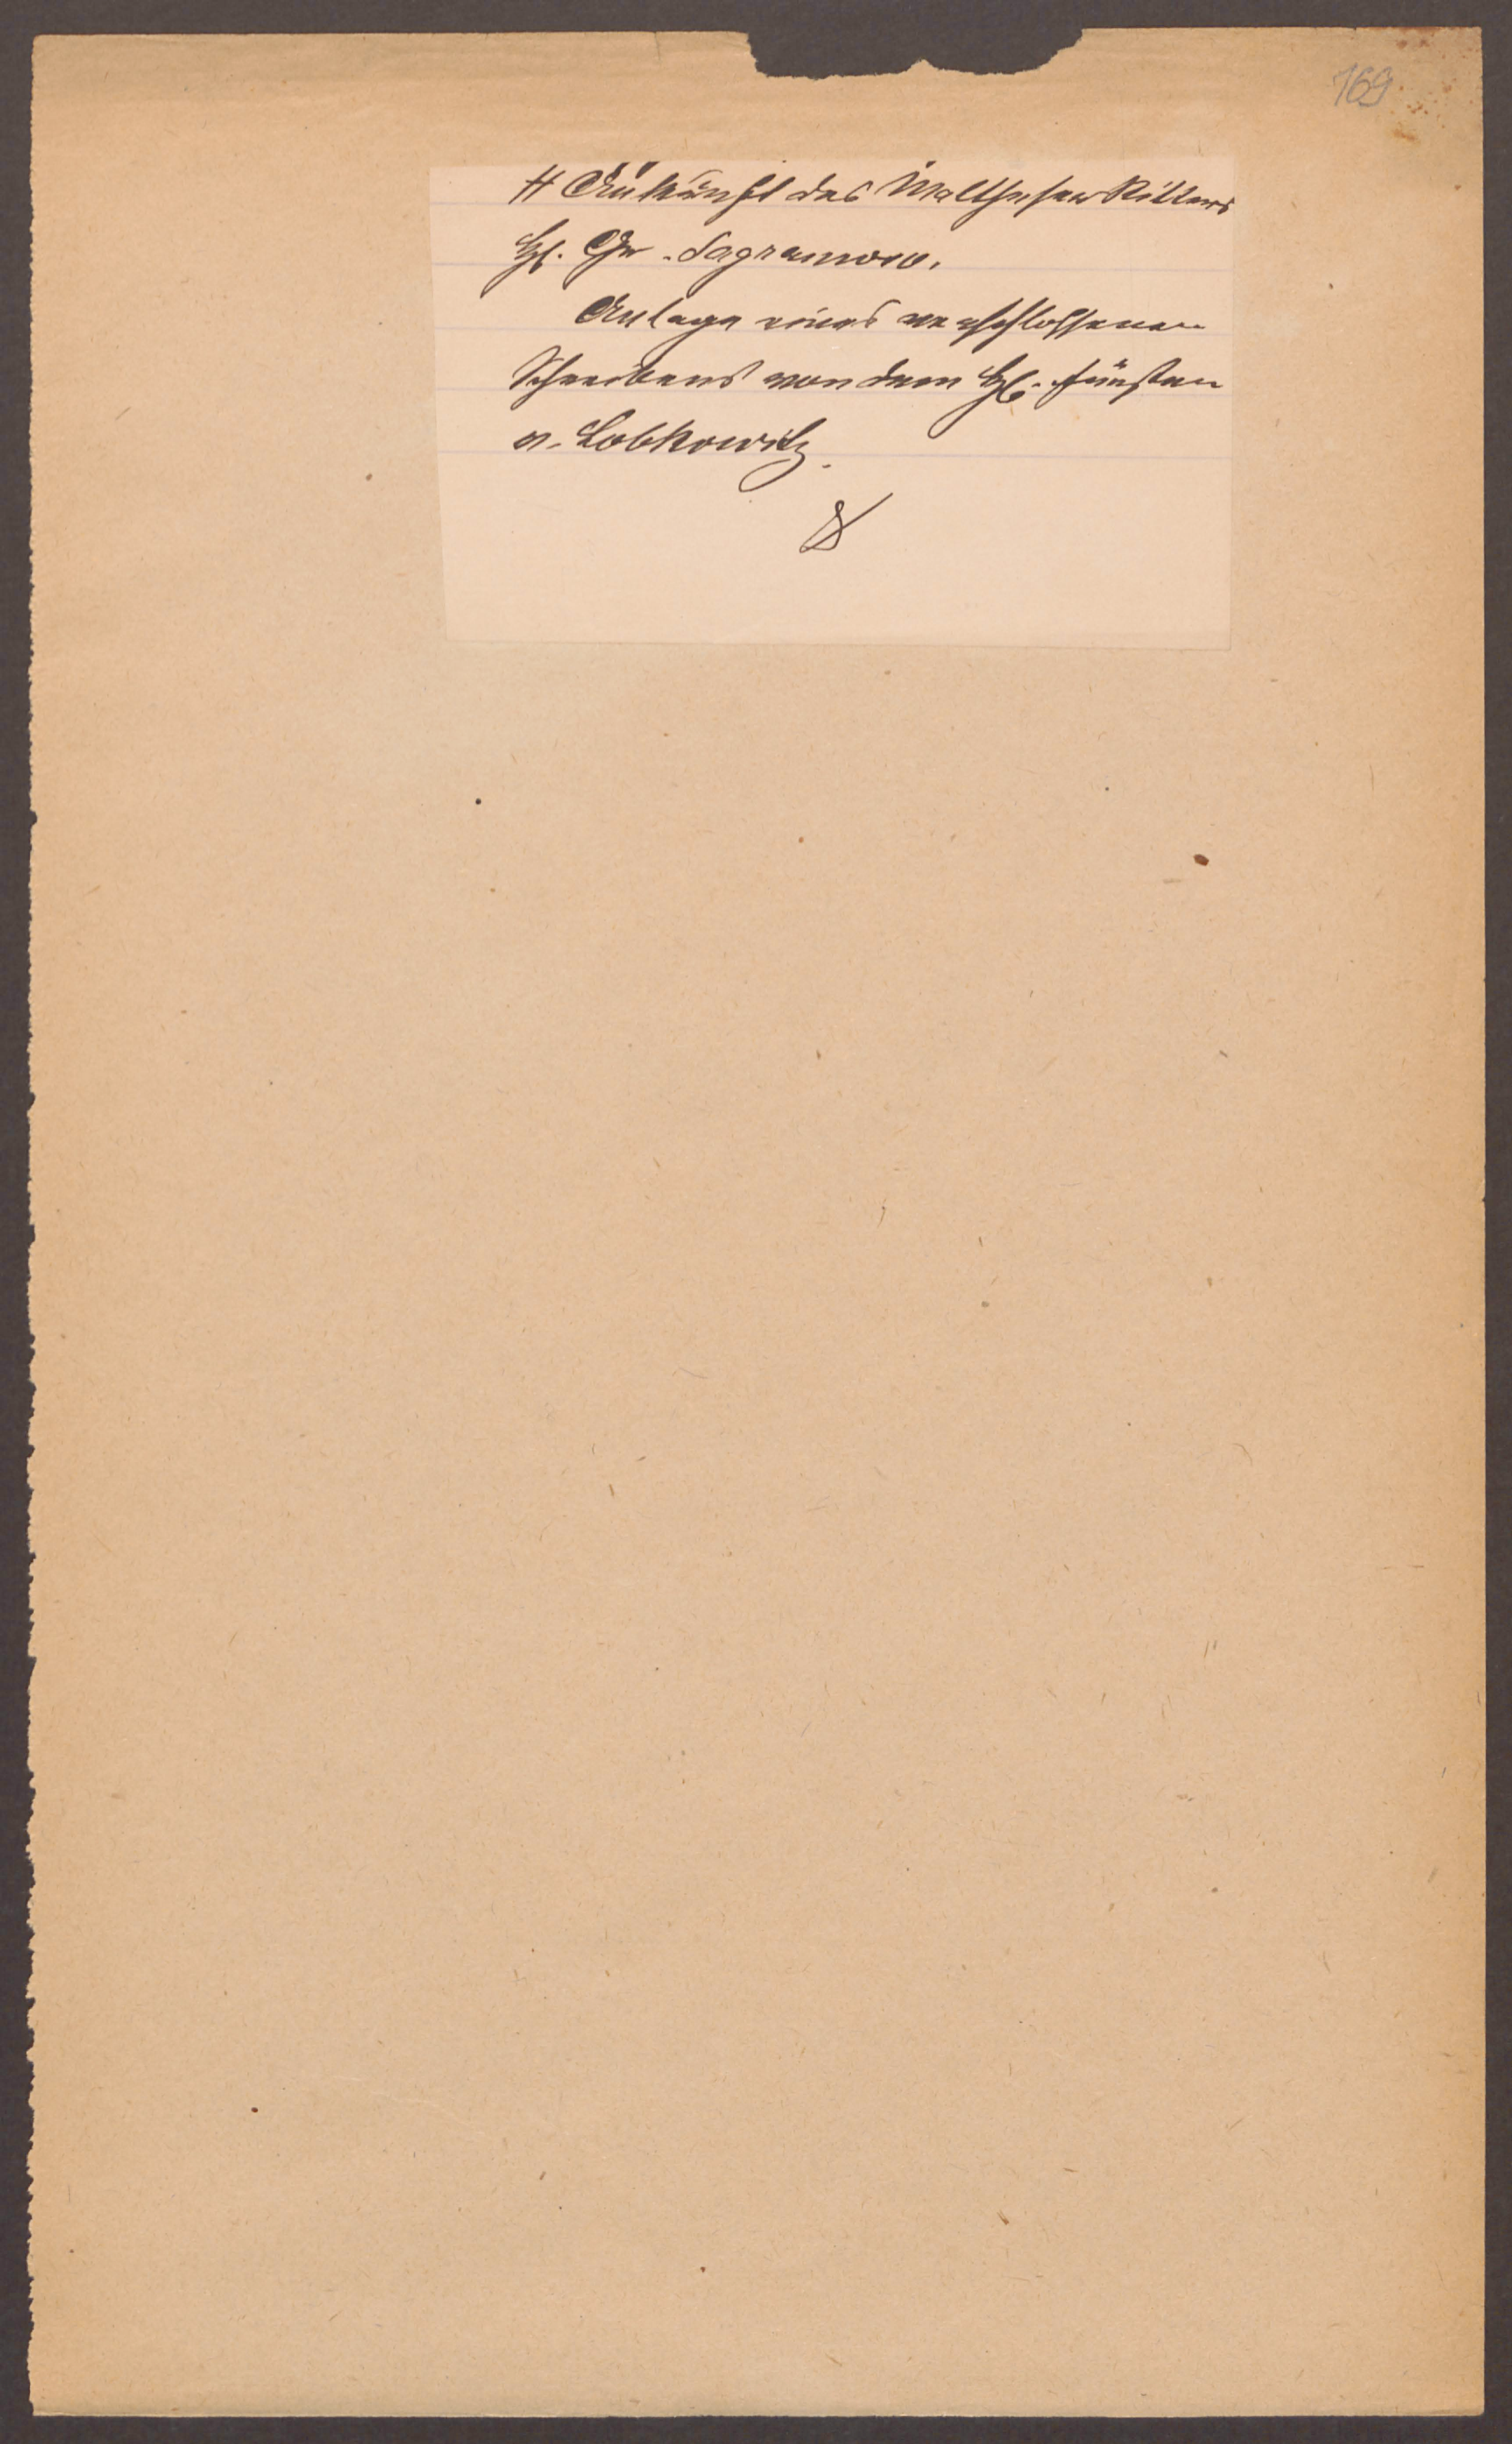 169
# Ankünft des Malthesen Ritters
H. Gr. Sagramoso.
Anlage eines verschlossenen
Schreibens von dem H. Fürsten
v. Lobkowitz.